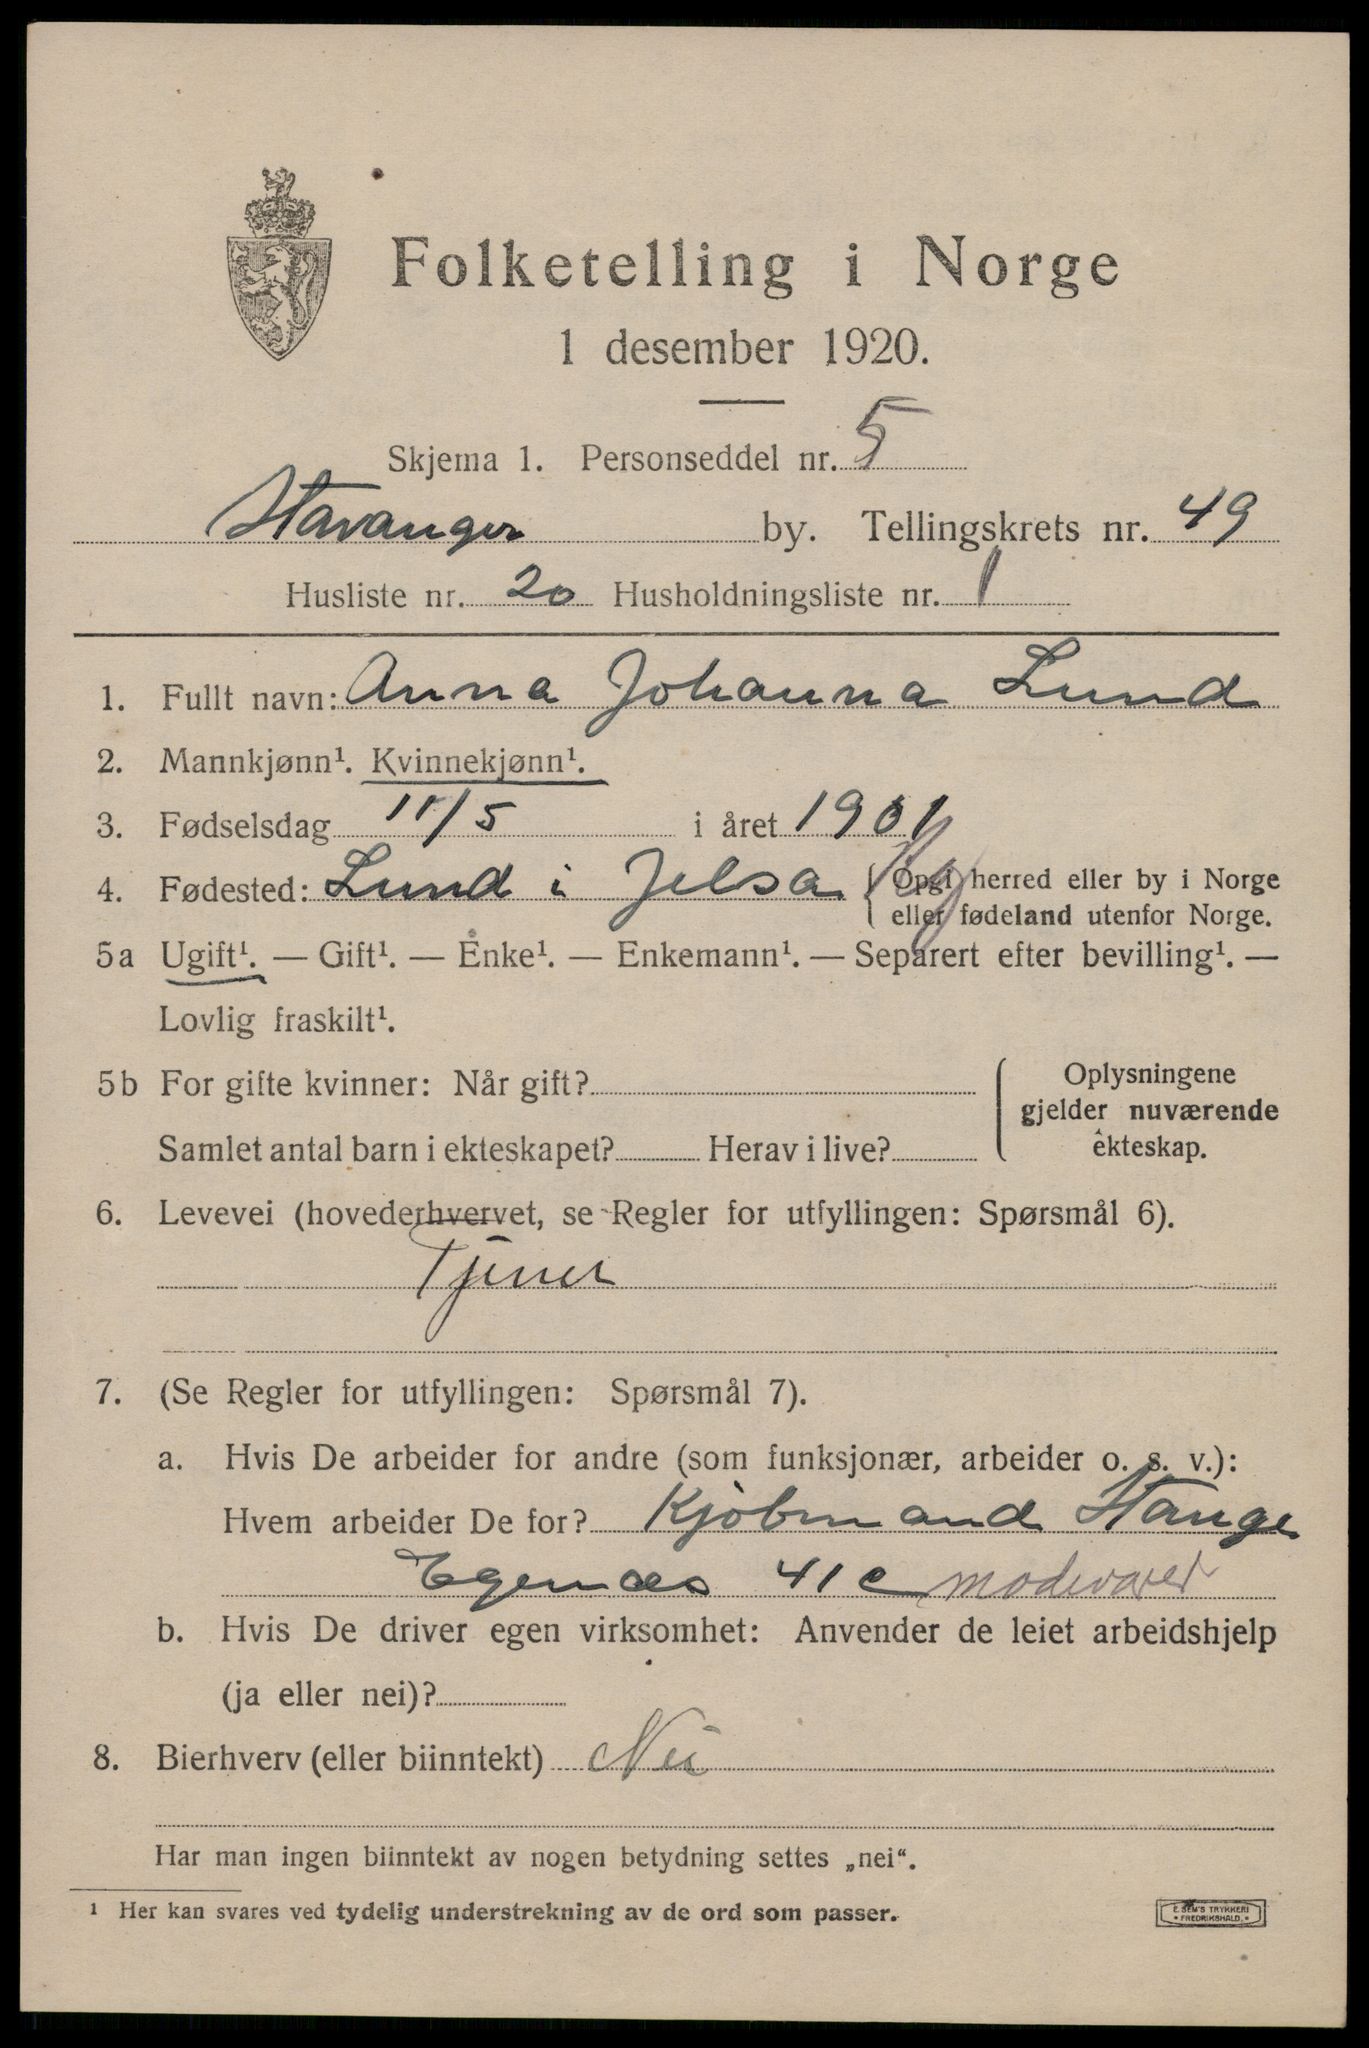 Folketelling i Norge
1 desember 1920.
Skjema 1. Personseddel nr. 5
Stavanger by. Tellingskrets nr. 49
Husliste nr. 20 Husholdningsliste nr. 1
1. Fullt navn: Anna Johanna Lund
2. Mannkjønn¹. Kvinnekjønn¹.
3. Fødselsdag 11/5 i året 1901
4. Fødested: Lund i Jelsa { Opgi herred eller by i Norge
eller fødeland utenfor Norge.
5a Ugift¹. — Gift¹. — Enke¹. — Enkemann¹. — Separert efter bevilling¹. —
Lovlig fraskilt¹.
5b For gifte kvinner: Når gift?
Samlet antal barn i ekteskapet? Herav i live?
Oplysningene
gjelder nuværende
ekteskap.
6. Levevei (hovederhvervet, se Regler for utfyllingen: Spørsmål 6).
Tjener
7. (Se Regler for utfyllingen: Spørsmål 7).
a. Hvis De arbeider for andre (som funksjonær, arbeider o. s. v.):
Hvem arbeider De for? Kjøbmand Stange
Egenæs 41 c modevarer
b. Hvis De driver egen virksomhet: Anvender de leiet arbeidshjelp
(ja eller nei)?
8. Bierhverv (eller biinntekt) Nei
Har man ingen biinntekt av nogen betydning settes „nei“.
¹ Her kan svares ved tydelig understrekning av de ord som passer.
E. SEM'S TRYKKERI
• FREDRIKSHALD. •